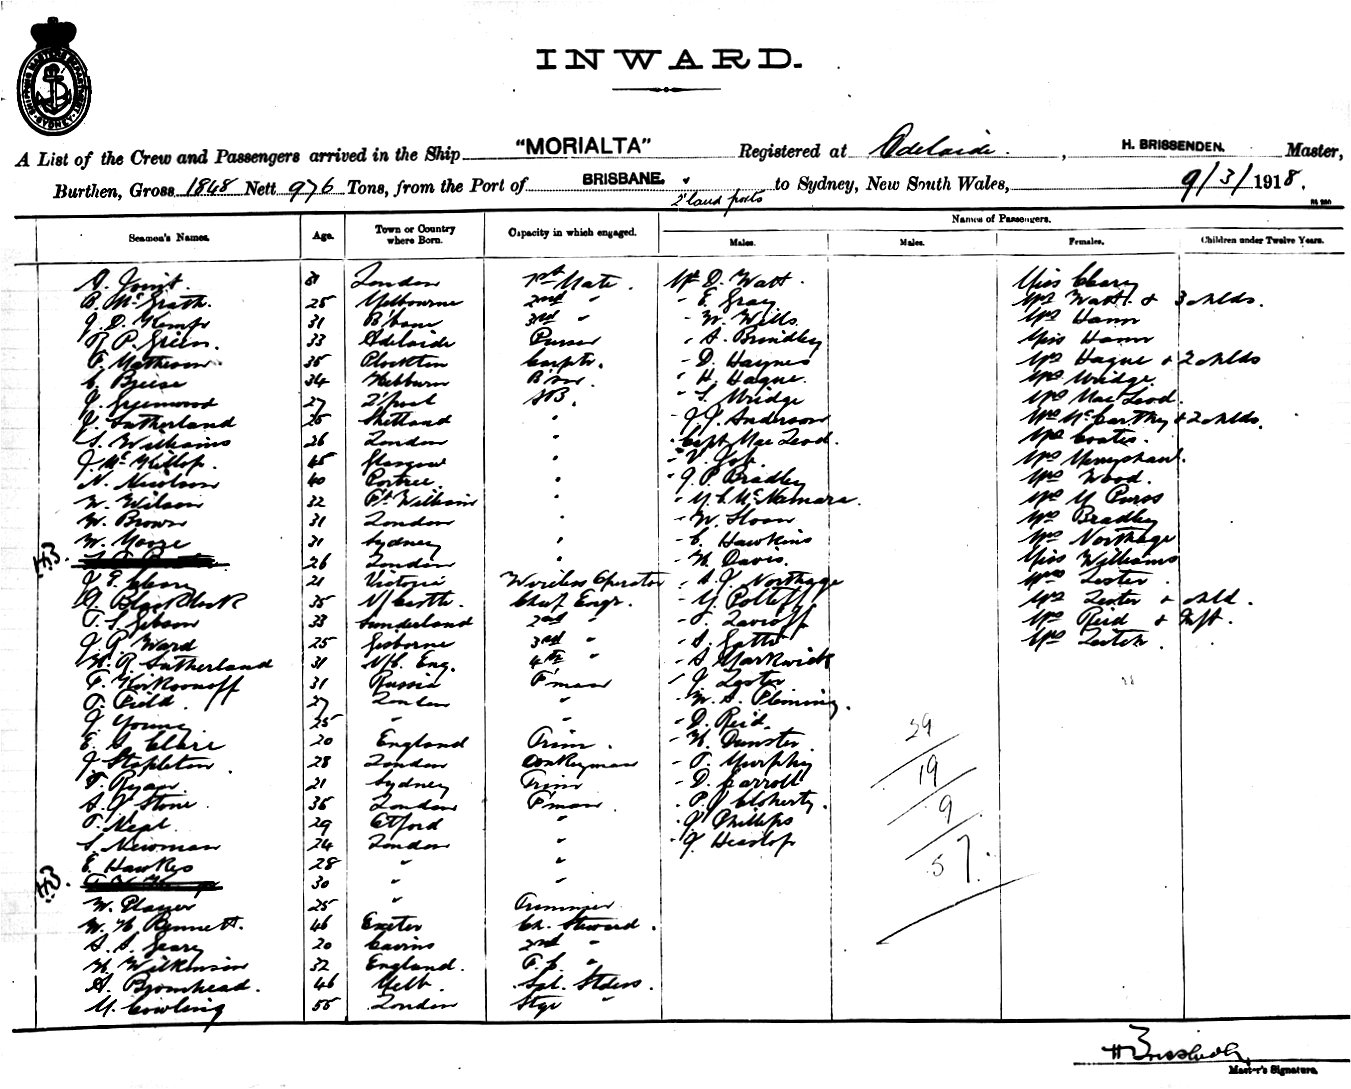 SHIPPING MASTERS DEPARTMENT SYDNEY
INWARD.
A List of the Crew and Passengers arrived in the Ship "MORIALTA" Registered at Adelaide. , H. BRISSENDEN. Master,
Burthen, Gross 1848 Nett 976 Tons, from the Port of BRISBANE. to Sydney, New South Wales, 9/3/1918.
Q'land ports
Names of Passengers.
Seamen's Names. Age. Town or Country where Born. Capacity in which engaged. Males. Males. Females. Children under Twelve Years.
A. Joint. 31 London 1st Mate. Mr D. Watt. Miss Cleary
B. McGrath. 25 Melbourne 2nd " " E. Gray Mrs Watt & 3 chlds.
J. D. Kemp 31 B'bane 3rd " " W. Wills Mrs Hann
R. P. Green. 33 Adelaide Purser " A. Brindley Miss Hann
F. Matheson 35 Plockton Carptr. " D. Haynes Mrs Hague & 2 chlds
C. Breese 34 Hebburn B'sn. " H. Hague Mrs Uridge.
J. Greenwood 27 L'pool AB. " S. Uridge Mrs MacLeod.
J. Sutherland 25 Shetland " " J. J. Anderson Mrs McCarthy & 2 chlds.
S. Williams 26 London " " Capt. MacLeod. Mrs Coates.
J. McKillop. 45 Glasgow " "
N. Nicolson 40 Portree " " J. P. Bradley Mrs Wood.
W. Wilson 32 Ft William " " McNamara. Mrs
W. Brown 31 London " " W. Sloan Mrs Bradley
W. Moore 31 Sydney " " C. Hawkins Mrs Northage
HB. 26 London " " H. Davis. Miss Williams
J. E. Cleary 21 Victoria Wireless Operator " A. J. Northage Mrs Lester.
A. Blacklock 35 N/Castle. Chief Engr. " Mrs Lester & chld.
T. S. Gibson 33 Sunderland 2nd " " Mrs Reid & Inft.
J. R. Ward 25 Gisborne 3rd " " Mrs Leitch.
W. R. Sutherland 31 N/C. Eng. 4th " " A. Markwick
31 Russia F'man " J. Lester
T. Field. 27 London " " W. A. Fleming.
J. Young 25 " " " D. Reid
E. A. Clare 20 England Trim. " H. Dunster 29
J. Stapleton. 28 London Donkeyman " T. Murphy
F. Ryan. 21 Sydney Trim " D. Carroll 19
A. J. Stone 36 London F'man. " P. J. Cloherty. 9
29 " " J. Phillips
S. Newman 24 London " " J. Heaslop 57.
E. Hawkes 28 " "
HB. 30 " "
W. Player 25 " Trimmer
W. H. Bennett. 46 Exeter Ch. Steward.
A. A. Geary 20 Cairns 2nd "
H. Wilkinson 32 England. F. S. "
A. Bromhead. 46 Melb. Stdess.
M. Cowling 55 London Stge "
H Brissenden
Master's Signature.